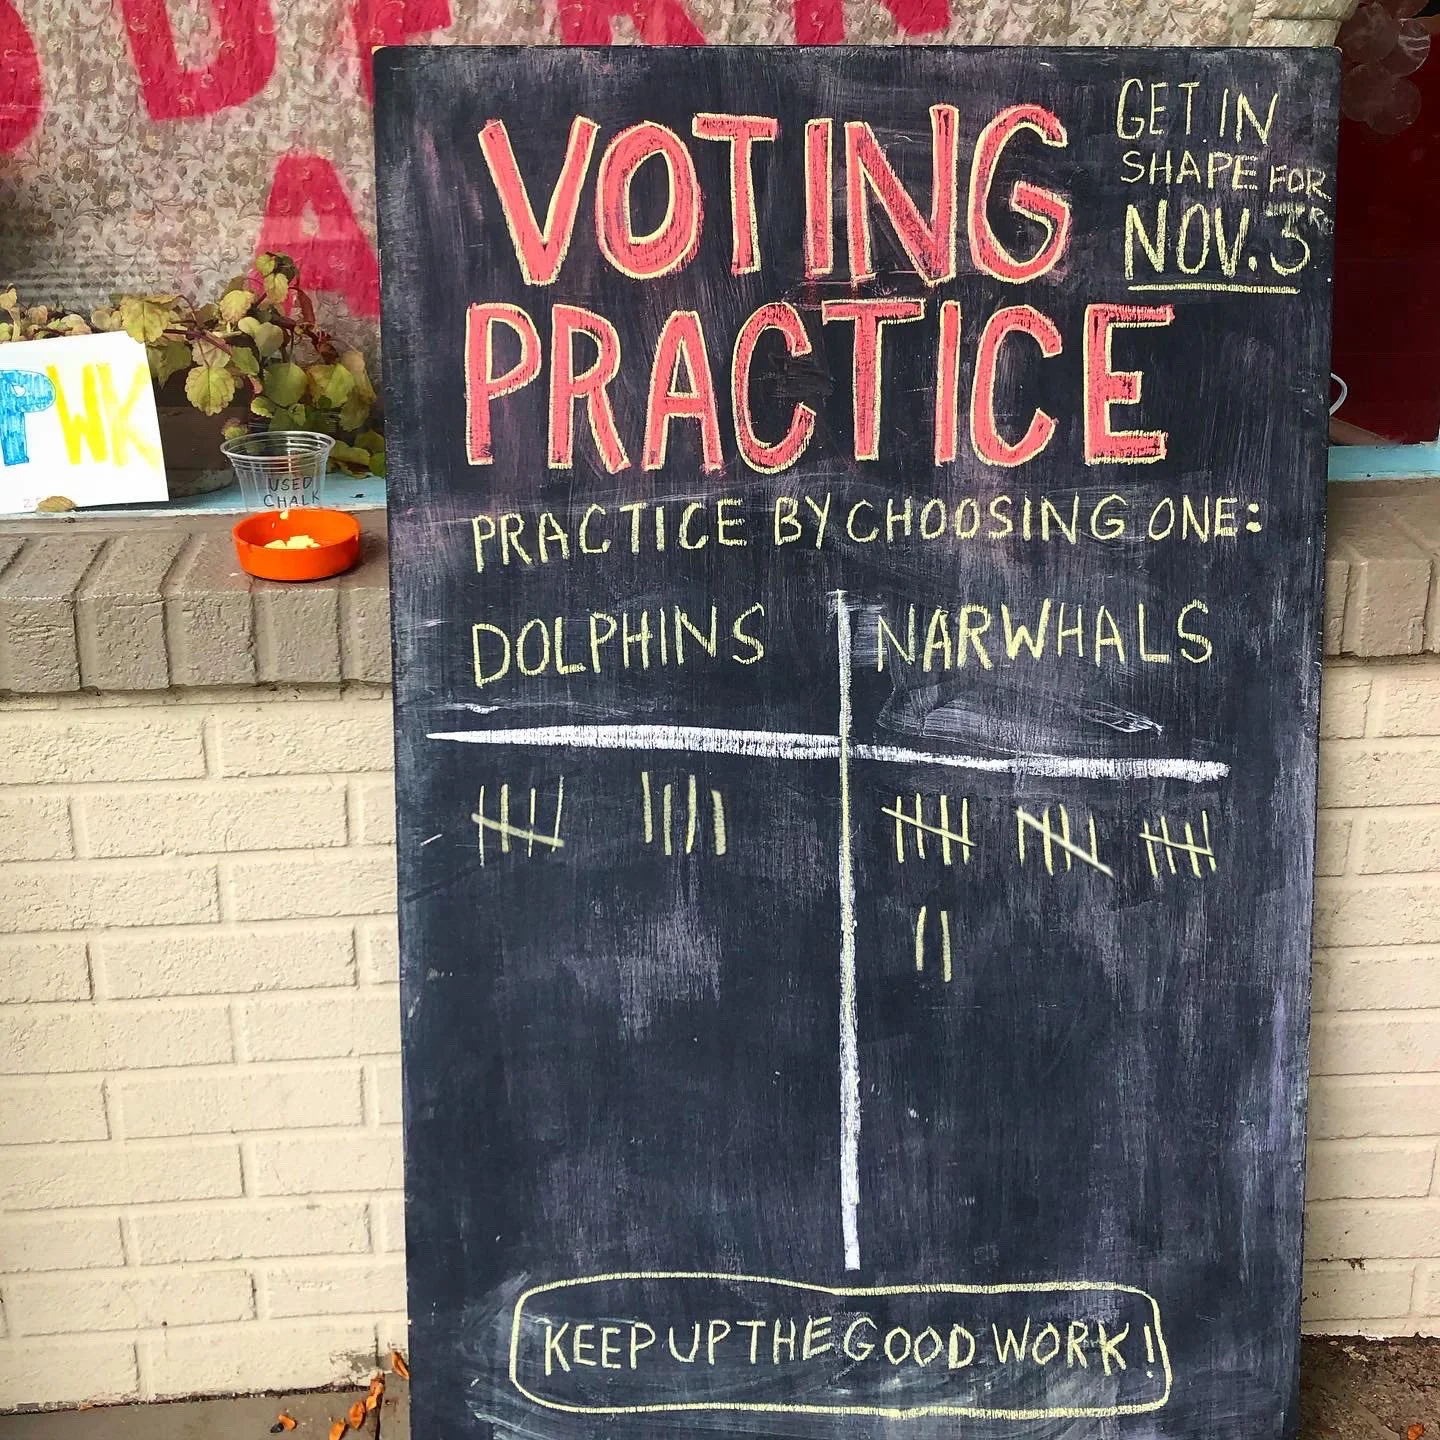 VOTING
PRACTICE
GET IN
SHAPE FOR
NOV. 3
PRACTICE BY CHOOSING ONE:
DOLPHINS
NARWHALS
KEEP UP THE GOOD WORK!
PWK
USED
CHALK